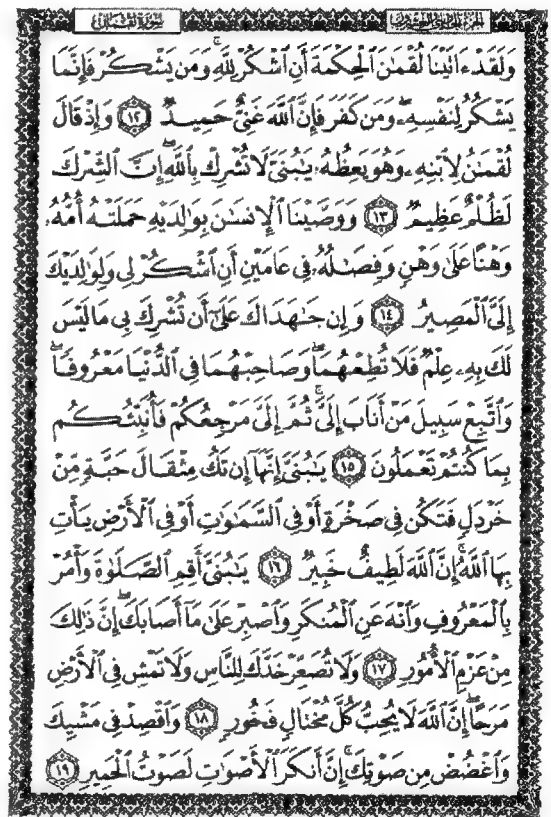 سُورَةُ لُقْمَان
وَلَقَدْ ءَاتَيْنَا لُقْمَٰنَ ٱلْحِكْمَةَ أَنِ ٱشْكُرْ لِلَّهِ ۚ وَمَن يَشْكُرْ فَإِنَّمَا
يَشْكُرُ لِنَفْسِهِۦ ۖ وَمَن كَفَرَ فَإِنَّ ٱللَّهَ غَنِىٌّ حَمِيدٌ ١٢ وَإِذْ قَالَ
لُقْمَٰنُ لِٱبْنِهِۦ وَهُوَ يَعِظُهُۥ يَٰبُنَىَّ لَا تُشْرِكْ بِٱللَّهِ ۖ إِنَّ ٱلشِّرْكَ
لَظُلْمٌ عَظِيمٌ ١٣ وَوَصَّيْنَا ٱلْإِنسَٰنَ بِوَٰلِدَيْهِ حَمَلَتْهُ أُمُّهُۥ
وَهْنًا عَلَىٰ وَهْنٍ وَفِصَٰلُهُۥ فِى عَامَيْنِ أَنِ ٱشْكُرْ لِى وَلِوَٰلِدَيْكَ
إِلَىَّ ٱلْمَصِيرُ ١٤ وَإِن جَٰهَدَاكَ عَلَىٰٓ أَن تُشْرِكَ بِى مَا لَيْسَ
لَكَ بِهِۦ عِلْمٌ فَلَا تُطِعْهُمَا ۖ وَصَاحِبْهُمَا فِى ٱلدُّنْيَا مَعْرُوفًا ۖ
وَٱتَّبِعْ سَبِيلَ مَنْ أَنَابَ إِلَىَّ ۚ ثُمَّ إِلَىَّ مَرْجِعُكُمْ فَأُنَبِّئُكُم
بِمَا كُنتُمْ تَعْمَلُونَ ١٥ يَٰبُنَىَّ إِنَّهَآ إِن تَكُ مِثْقَالَ حَبَّةٍ مِّنْ
خَرْدَلٍ فَتَكُن فِى صَخْرَةٍ أَوْ فِى ٱلسَّمَٰوَٰتِ أَوْ فِى ٱلْأَرْضِ يَأْتِ
بِهَا ٱللَّهُ ۚ إِنَّ ٱللَّهَ لَطِيفٌ خَبِيرٌ ١٦ يَٰبُنَىَّ أَقِمِ ٱلصَّلَوٰةَ وَأْمُرْ
بِٱلْمَعْرُوفِ وَٱنْهَ عَنِ ٱلْمُنكَرِ وَٱصْبِرْ عَلَىٰ مَآ أَصَابَكَ ۖ إِنَّ ذَٰلِكَ
مِنْ عَزْمِ ٱلْأُمُورِ ١٧ وَلَا تُصَعِّرْ خَدَّكَ لِلنَّاسِ وَلَا تَمْشِ فِى ٱلْأَرْضِ
مَرَحًا ۖ إِنَّ ٱللَّهَ لَا يُحِبُّ كُلَّ مُخْتَالٍ فَخُورٍ ١٨ وَٱقْصِدْ فِى مَشْيِكَ
وَٱغْضُضْ مِن صَوْتِكَ ۚ إِنَّ أَنكَرَ ٱلْأَصْوَٰتِ لَصَوْتُ ٱلْحَمِيرِ ١٩